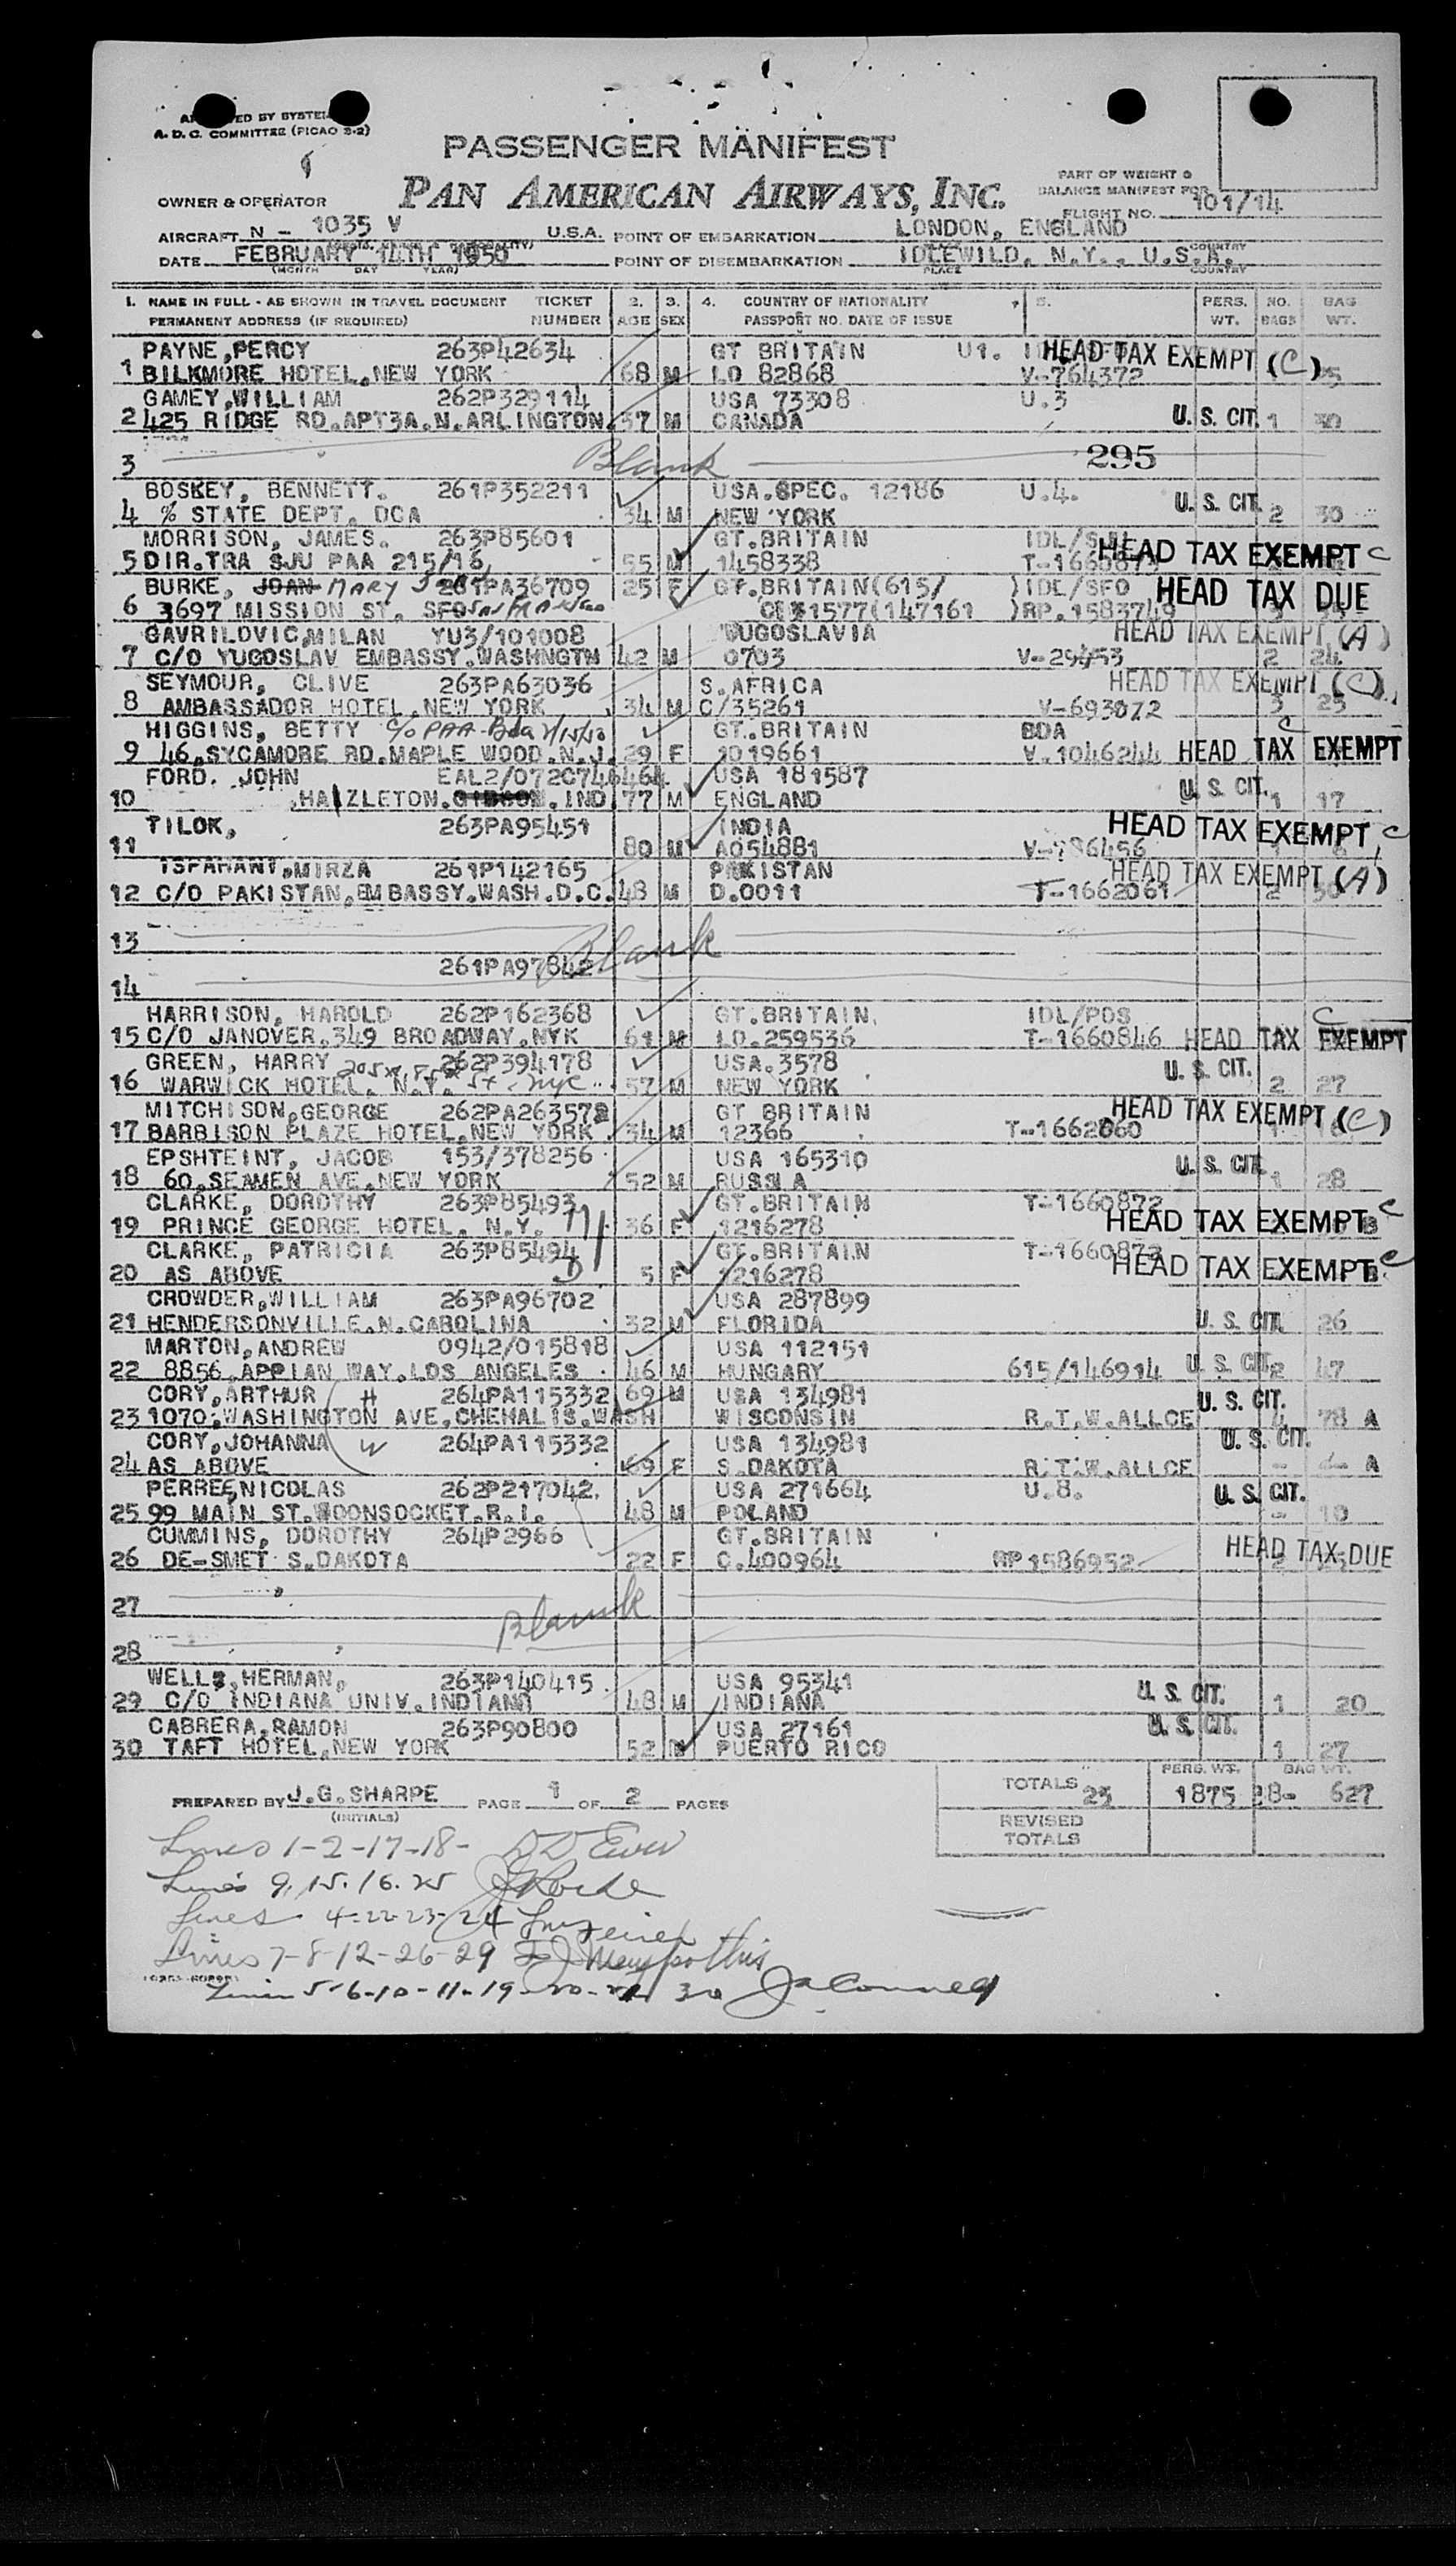 A. D. C. COMMITTEE (PICAO 2-2)
PASSENGER MANIFEST
PAN AMERICAN AIRWAYS, INC.
PART OF WEIGHT &
BALANCE MANIFEST FOR
FLIGHT NO. 101/14
OWNER & OPERATOR
AIRCRAFT N - 1035 V U.S.A. POINT OF EMBARKATION LONDON, ENGLAND
DATE FEBRUARY 14TH 1950 POINT OF DISEMBARKATION IDLEWILD, N.Y., U.S.A.
(MONTH DAY YEAR) PLACE COUNTRY
1. NAME IN FULL - AS SHOWN IN TRAVEL DOCUMENT TICKET 2. 3. 4. COUNTRY OF NATIONALITY 5. PERS. NO. BAG
PERMANENT ADDRESS (IF REQUIRED) NUMBER AGE SEX PASSPORT NO. DATE OF ISSUE WT. BAGS WT.
PAYNE,PERCY 263P42634 GT BRITAIN U1. HEAD TAX EXEMPT (C)
1 BILKMORE HOTEL.NEW YORK 68 M LO 82868 V-764372
GAMEY,WILLIAM 262P329114 USA 73308 U.3
2 425 RIDGE RD.APT3A.N.ARLINGTON. 37 M CANADA U. S. CIT. 1 30
3 Blank 295
BOSKEY, BENNETT. 261P352211 USA.SPEC. 12186 U.4.
4 % STATE DEPT. DCA 34 M NEW YORK U. S. CIT. 2 30
MORRISON, JAMES. 263P85601 GT.BRITAIN
5 DIR.TRA SJU PAA 215/16 55 M 1458338 HEAD TAX EXEMPT C
BURKE, JOAN MARY 261PA36709 25 F GT.BRITAIN(615/ )IDL/SFO HEAD TAX DUE
6 3697 MISSION ST. SFO San Francisco 1577(147161 )RP.1583749
GAVRILOVIC,MILAN YU3/101008 YUGOSLAVIA HEAD TAX EXEMPT (A)
7 C/O YUGOSLAV EMBASSY.WASHNGTN 42 M 0703 V-29453 2 24
SEYMOUR, CLIVE 263PA63036 S.AFRICA HEAD TAX EXEMPT (C)
8 AMBASSADOR HOTEL.NEW YORK 34 M C/35261 V-693072 3 25
HIGGINS, BETTY C/o PAA Bda 2/15/50 GT.BRITAIN BDA C
9 46.SYCAMORE RD.MAPLE WOOD.N.J. 29 F 1019661 V.1046244 HEAD TAX EXEMPT
FORD. JOHN EAL2/072C746464 USA 181587
10 .HAZLETON. .IND. 77 M ENGLAND U. S. CIT. 1 17
TILOK, 263PA95451 INDIA HEAD TAX EXEMPT C
11 80 M A054881 V-786456
ISPAHANI,MIRZA 261P142165 PAKISTAN HEAD TAX EXEMPT (A)
12 C/O PAKISTAN.EMBASSY.WASH.D.C. 48 M D.0011 T-1662061 2 30
13 Blank
261PA97842
14
HARRISON, HAROLD 262P162368 GT.BRITAIN. IDL/POS C
15 C/O JANOVER.349 BROADWAY.NYK 61 M LO.259536 T-1660846 HEAD TAX EXEMPT
GREEN, HARRY 262P394178 USA.3578
16 WARWICK HOTEL. N.Y. St. nyc 57 M NEW YORK U. S. CIT. 2 27
MITCHISON,GEORGE 262PA263572 GT BRITAIN HEAD TAX EXEMPT (C)
17 BARBISON PLAZE HOTEL.NEW YORK 34 M 12366 T-1662060
EPSHTEINT, JACOB 153/378256 USA 165310
18 60.SEAMEN AVE.NEW YORK 52 M RUSSIA U. S. CIT. 1 28
CLARKE, DOROTHY 263P85493 GT.BRITAIN T-1660872
19 PRINCE GEORGE HOTEL. N.Y. 36 F 1216278 HEAD TAX EXEMPT C
CLARKE, PATRICIA 263P85494 GT.BRITAIN T-1660872
20 AS ABOVE 5 F 1216278 HEAD TAX EXEMPT C
CROWDER,WILLIAM 263PA96702 USA 287899
21 HENDERSONVILLE.N.CAROLINA 32 M FLORIDA U. S. CIT. 26
MARTON,ANDREW 0942/015818 USA 112151
22 8856.APPIAN WAY.LOS ANGELES 46 M HUNGARY 615/146914 U. S. CIT. 2 47
CORY,ARTHUR H 264PA115332 69 M USA 134981 U. S. CIT.
23 1070.WASHINGTON AVE.CHEHALIS.WASH WISCONSIN R.T.W.ALLCE 4 78 A
CORY,JOHANNA W 264PA115332 USA 134981 U. S. CIT.
24 AS ABOVE 69 F S.DAKOTA R.T.W.ALLCE - - A
PERREE,NICOLAS 262P217042. USA 271664 U.8.
25 99 MAIN ST.WOONSOCKET.R.I. 48 M POLAND U. S. CIT. - 10
CUMMINS, DOROTHY 264P2966 GT.BRITAIN
26 DE-SMET S.DAKOTA 22 F C.400964 RP1586952 HEAD TAX DUE
27 Blank
28
WELLS,HERMAN. 263P140415 USA 95341
29 C/O INDIANA UNIV.INDIANA 48 M INDIANA U. S. CIT. 1 20
CABRERA,RAMON 263P90800 USA 27161 U. S. CIT.
30 TAFT HOTEL.NEW YORK 52 M PUERTO RICO 1 27
PERS. WT. BAG WT.
PREPARED BY J.G.SHARPE PAGE 1 OF 2 PAGES TOTALS 25 1875 28- 627
(INITIALS) REVISED
TOTALS
Lines 1-2-17-18-
Lines 9.15.16.25
Lines 4-22-23-24
Lines 7-8-12-26-29
Lines 5-6-10-11-19-20-21 30